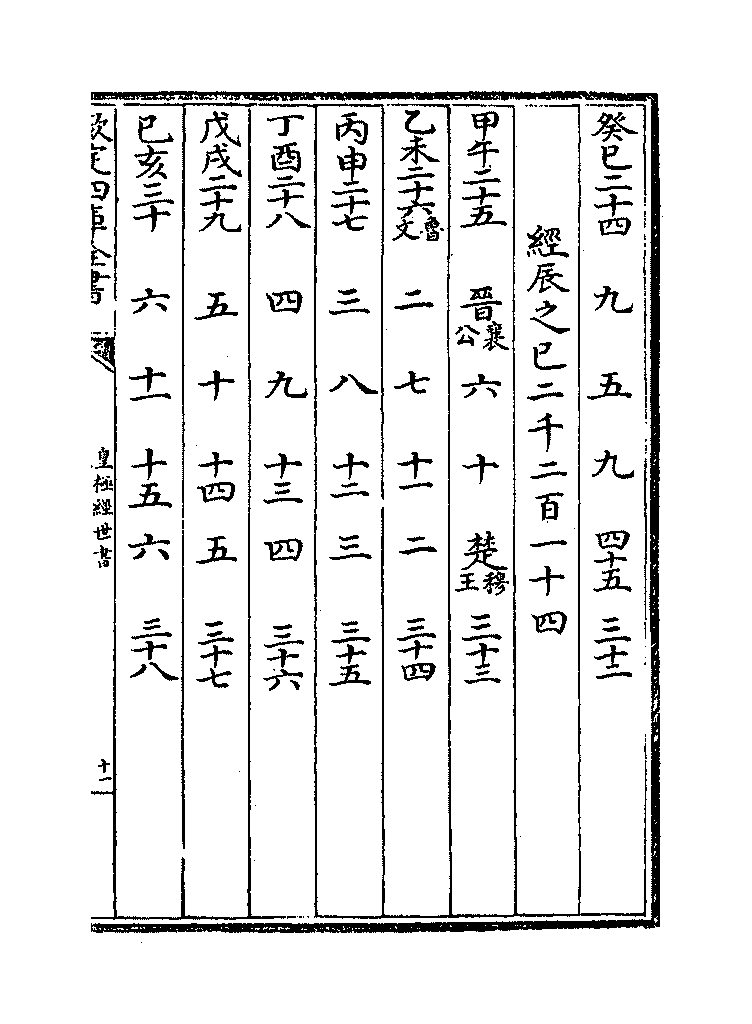 癸巳二十四 九 五 九 四十五 三十二
經辰之巳二千二百一十四
甲午二十五 晉襄公 六 十 楚穆王 三十三
乙未二十六魯文 二 七 十一 二 三十四
丙申二十七 三 八 十二 三 三十五
丁酉二十八 四 九 十三 四 三十六
戊戌二十九 五 十 十四 五 三十七
己亥三十 六 十一 十五 六 三十八
欽定四庫全書
皇極經世書
十一